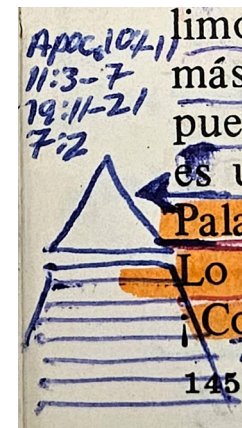 Apoc. 10:1-11
11:3-7
19:11-21
7:2
limo
más
pue
es u
Pala
Lo
¡Co
145